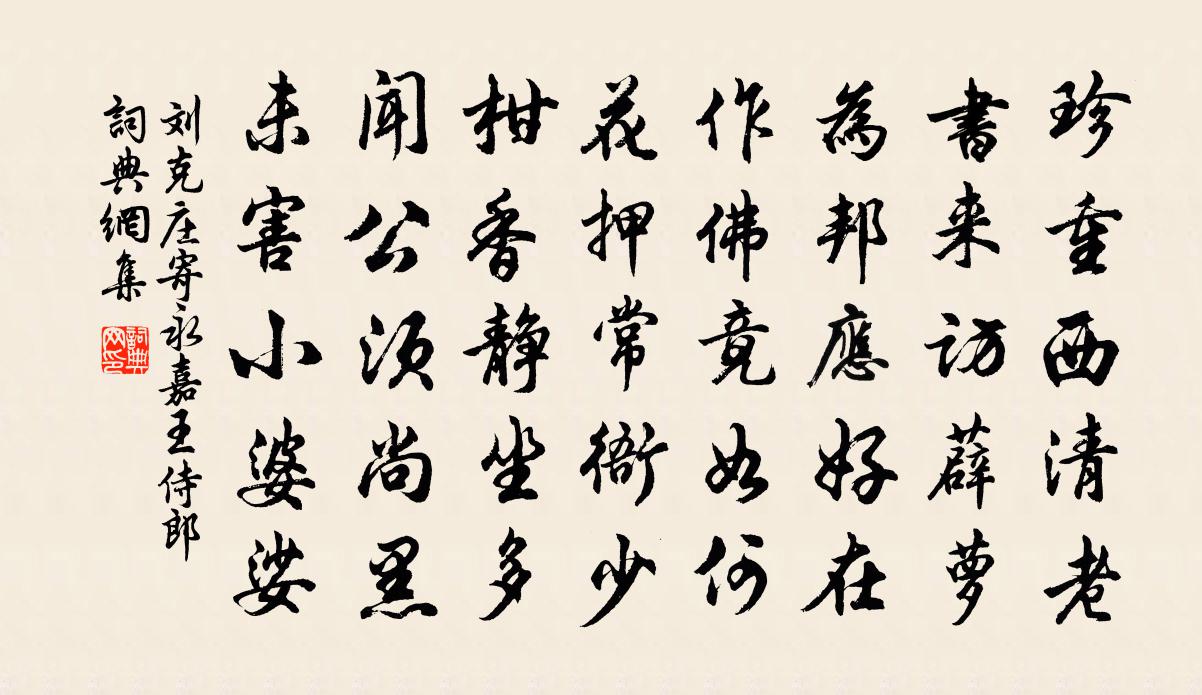 珍重西清老
書来訪薜萝
為邦應好在
作佛竟如何
花押常衙少
柑香静坐多
聞公須尚黑
未害小婆娑
刘克庄寄永嘉王侍郎
詞典網集
詞典网印